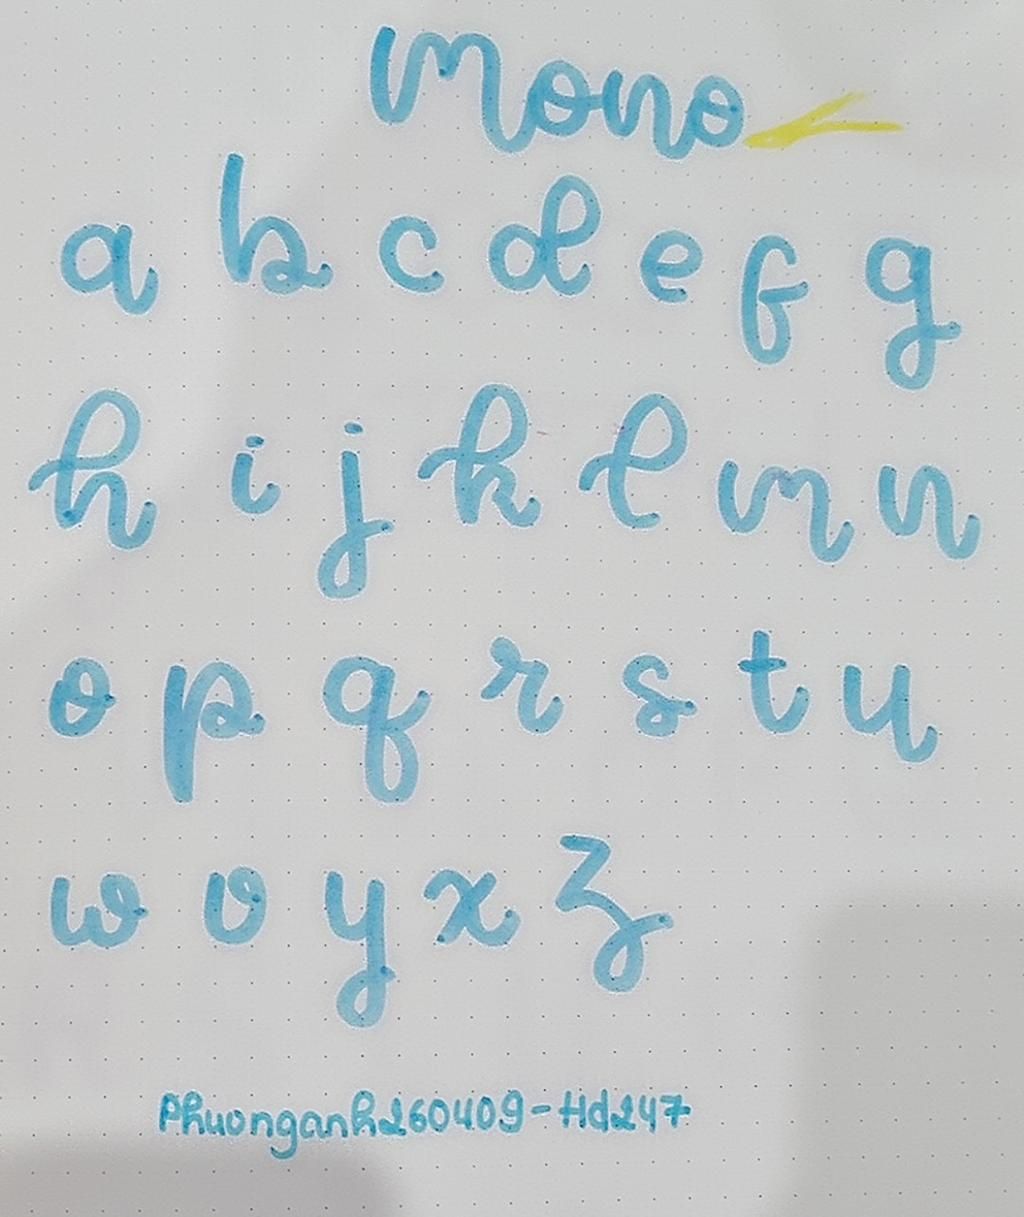 Mono
a b c d e f g
h i j k l m n
o p q r s t u
w v y x z
Phuonganh260409-Hd247